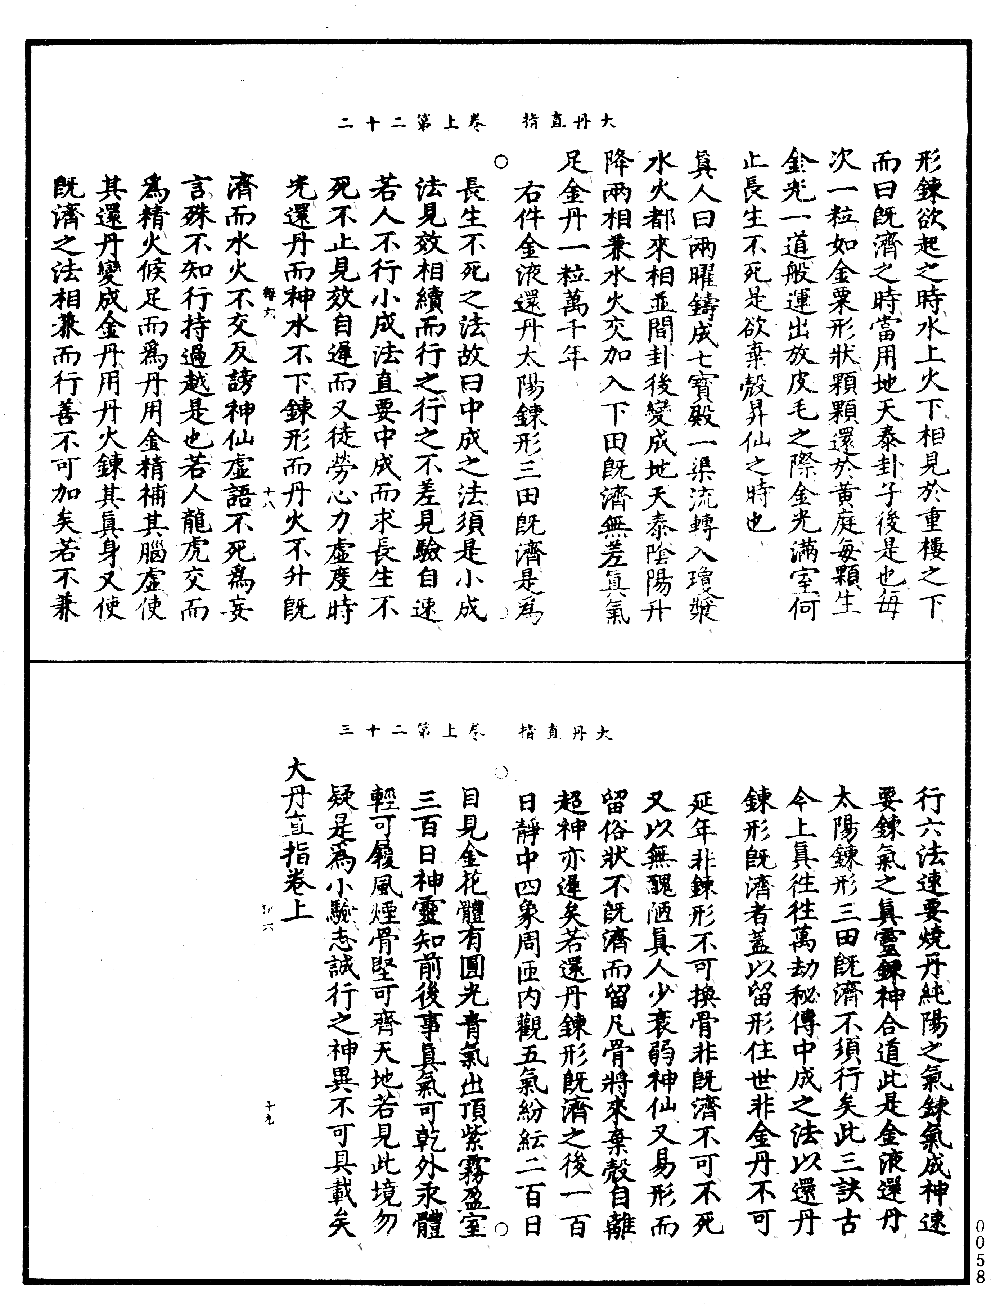 大丹直指　卷上第二十二
形鍊欲起之時水上火下相見於重樓之下
而曰既濟之時當用地天泰卦子後是也每
次一粒如金粟形狀顆顆還於黃庭每顆生
金光一道般運出放皮毛之際金光滿室何
止長生不死是欲棄殼昇仙之時也
真人曰兩曜鑄成七寶殿一渠流轉入瓊漿
水火都來相並間卦後變成地天泰陰陽升
降兩相兼水火交加入下田既濟無差真氣
足金丹一粒萬千年
右件金液還丹太陽鍊形三田既濟是爲
長生不死之法故曰中成之法須是小成
法見效相續而行之行之不差見驗自速
若人不行小成法直要中成而求長生不
死不止見效自遲而又徒勞心力虛度時
光還丹而神水不下鍊形而丹火不升既
十八
濟而水火不交反謗神仙虛語不死爲妄
言殊不知行持過越是也若人龍虎交而
爲精火候足而爲丹用金精補其腦虛使
其還丹變成金丹用丹火鍊其真身又使
既濟之法相兼而行善不可加矣若不兼
大丹直指　卷上第二十三
行六法速要燒丹純陽之氣鍊氣成神速
要鍊氣之真靈鍊神合道此是金液還丹
太陽鍊形三田既濟不須行矣此三訣古
今上真往往萬劫秘傳中成之法以還丹
鍊形既濟者蓋以留形住世非金丹不可
延年非鍊形不可換骨非既濟不可不死
又以無醜陋真人少衰弱神仙又易形而
留俗狀不既濟而留凡骨將來棄殼自離
超神亦遲矣若還丹鍊形既濟之後一百
日靜中四象周匝內觀五氣紛紜二百日
目見金花體有圓光青氣出頂紫霧盈室
三百日神靈知前後事真氣可乾外汞體
輕可履風煙骨堅可齊天地若見此境勿
疑是爲小驗志誠行之神異不可具載矣
大丹直指卷上
十九
0058